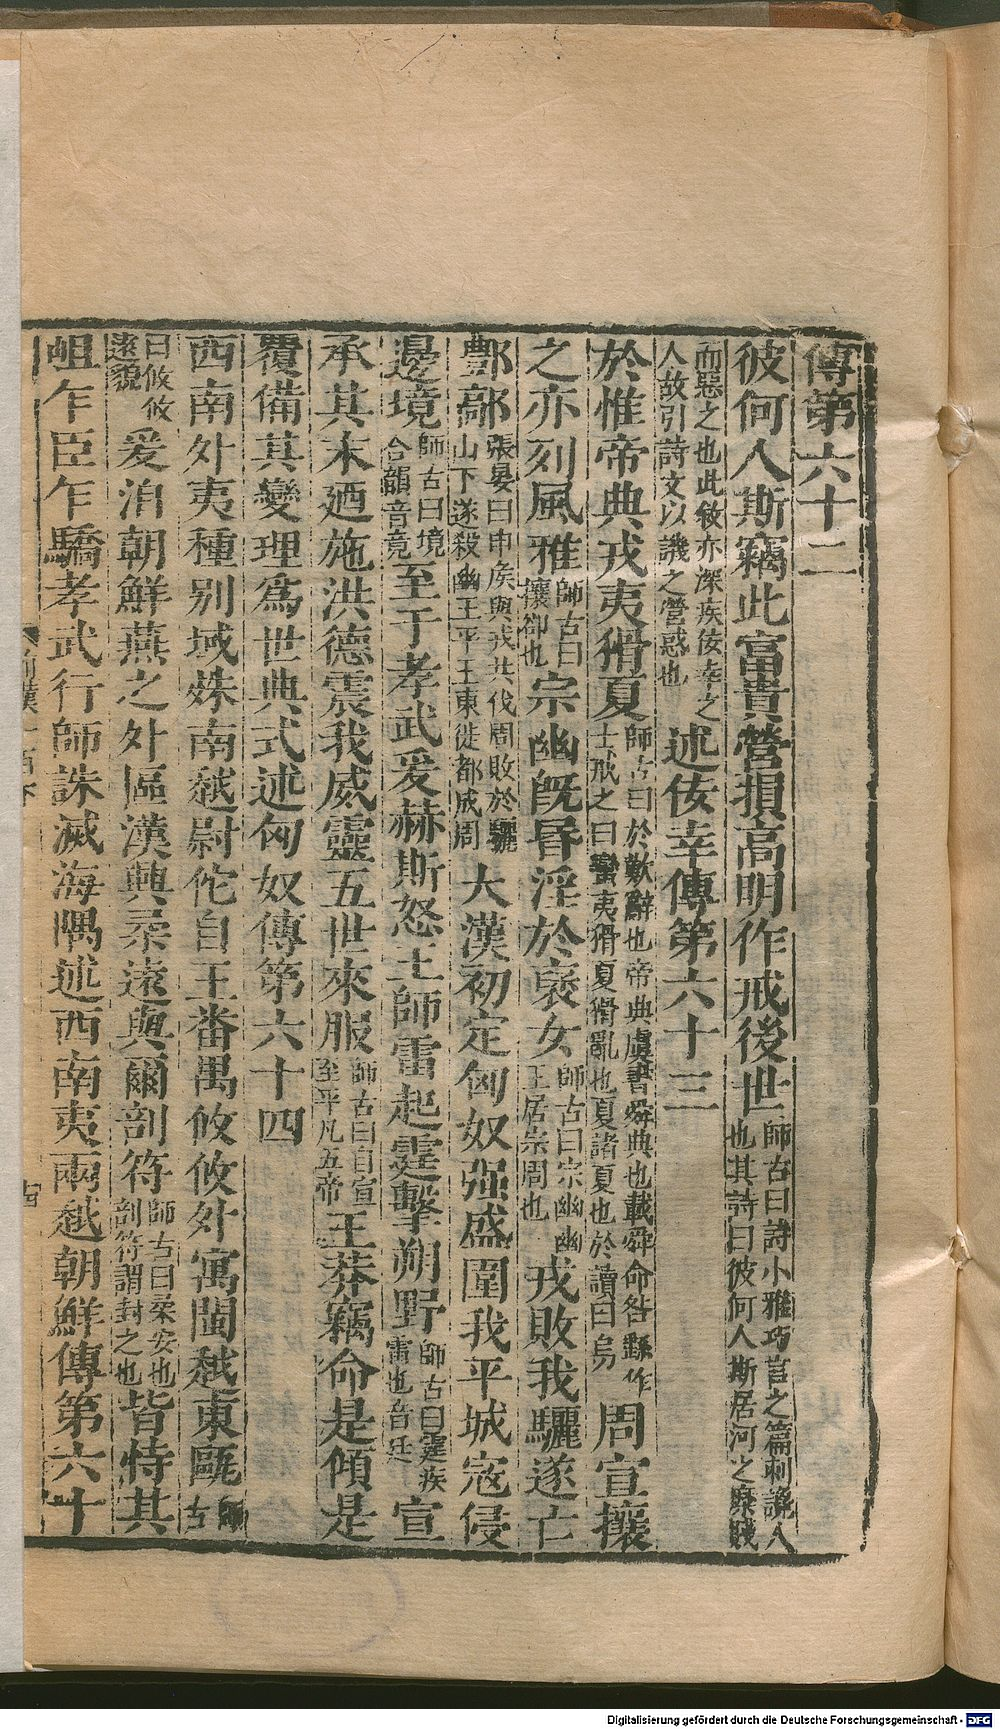 傳第六十二
彼何人斯竊此富貴營損高明作戒後世師古曰詩小雅巧言之篇刺讒人也其詩曰彼何人斯居河之麋賤
而惡之也此敘亦深疾佞幸之人故引詩文以譏之營惑也述佞幸傳第六十三
於惟帝典戎夷猾夏師古曰於歎辭也帝典虞書舜典也載舜命咎繇作士戒之曰蠻夷猾夏猾亂也夏諸夏也於讀曰烏周宣攘
之亦列風雅師古曰攘卻也宗幽旣昬淫於襃女師古曰宗幽幽王居宗周也戎敗我驪遂亡
酆鄗張晏曰申矦與戎共伐周敗於驪山下遂殺幽王平王東徙都成周大漢初定匈奴强盛圍我平城宼侵
邊境師古曰境合韻音竟至于孝武爰赫斯怒王師雷起霆擊朔野師古曰霆疾雷也音廷宣
承其末廼施洪德震我威靈五世來服師古曰自宣至平凡五帝王莽竊命是傾是
覆備其變理爲世典式述匈奴傳第六十四
西南外夷種别域殊南越尉佗自王番禺攸攸外寓閩越東甌師古
曰攸攸遠貌爰洎朝鮮燕之外區漢興柔遠與爾剖符師古曰柔安也剖符謂封之也皆恃其
岨乍臣乍驕孝武行師誅滅海隅述西南夷兩越朝鮮傳第六十
Digitalisierung gefördert durch die Deutsche Forschungsgemeinschaft - DFG